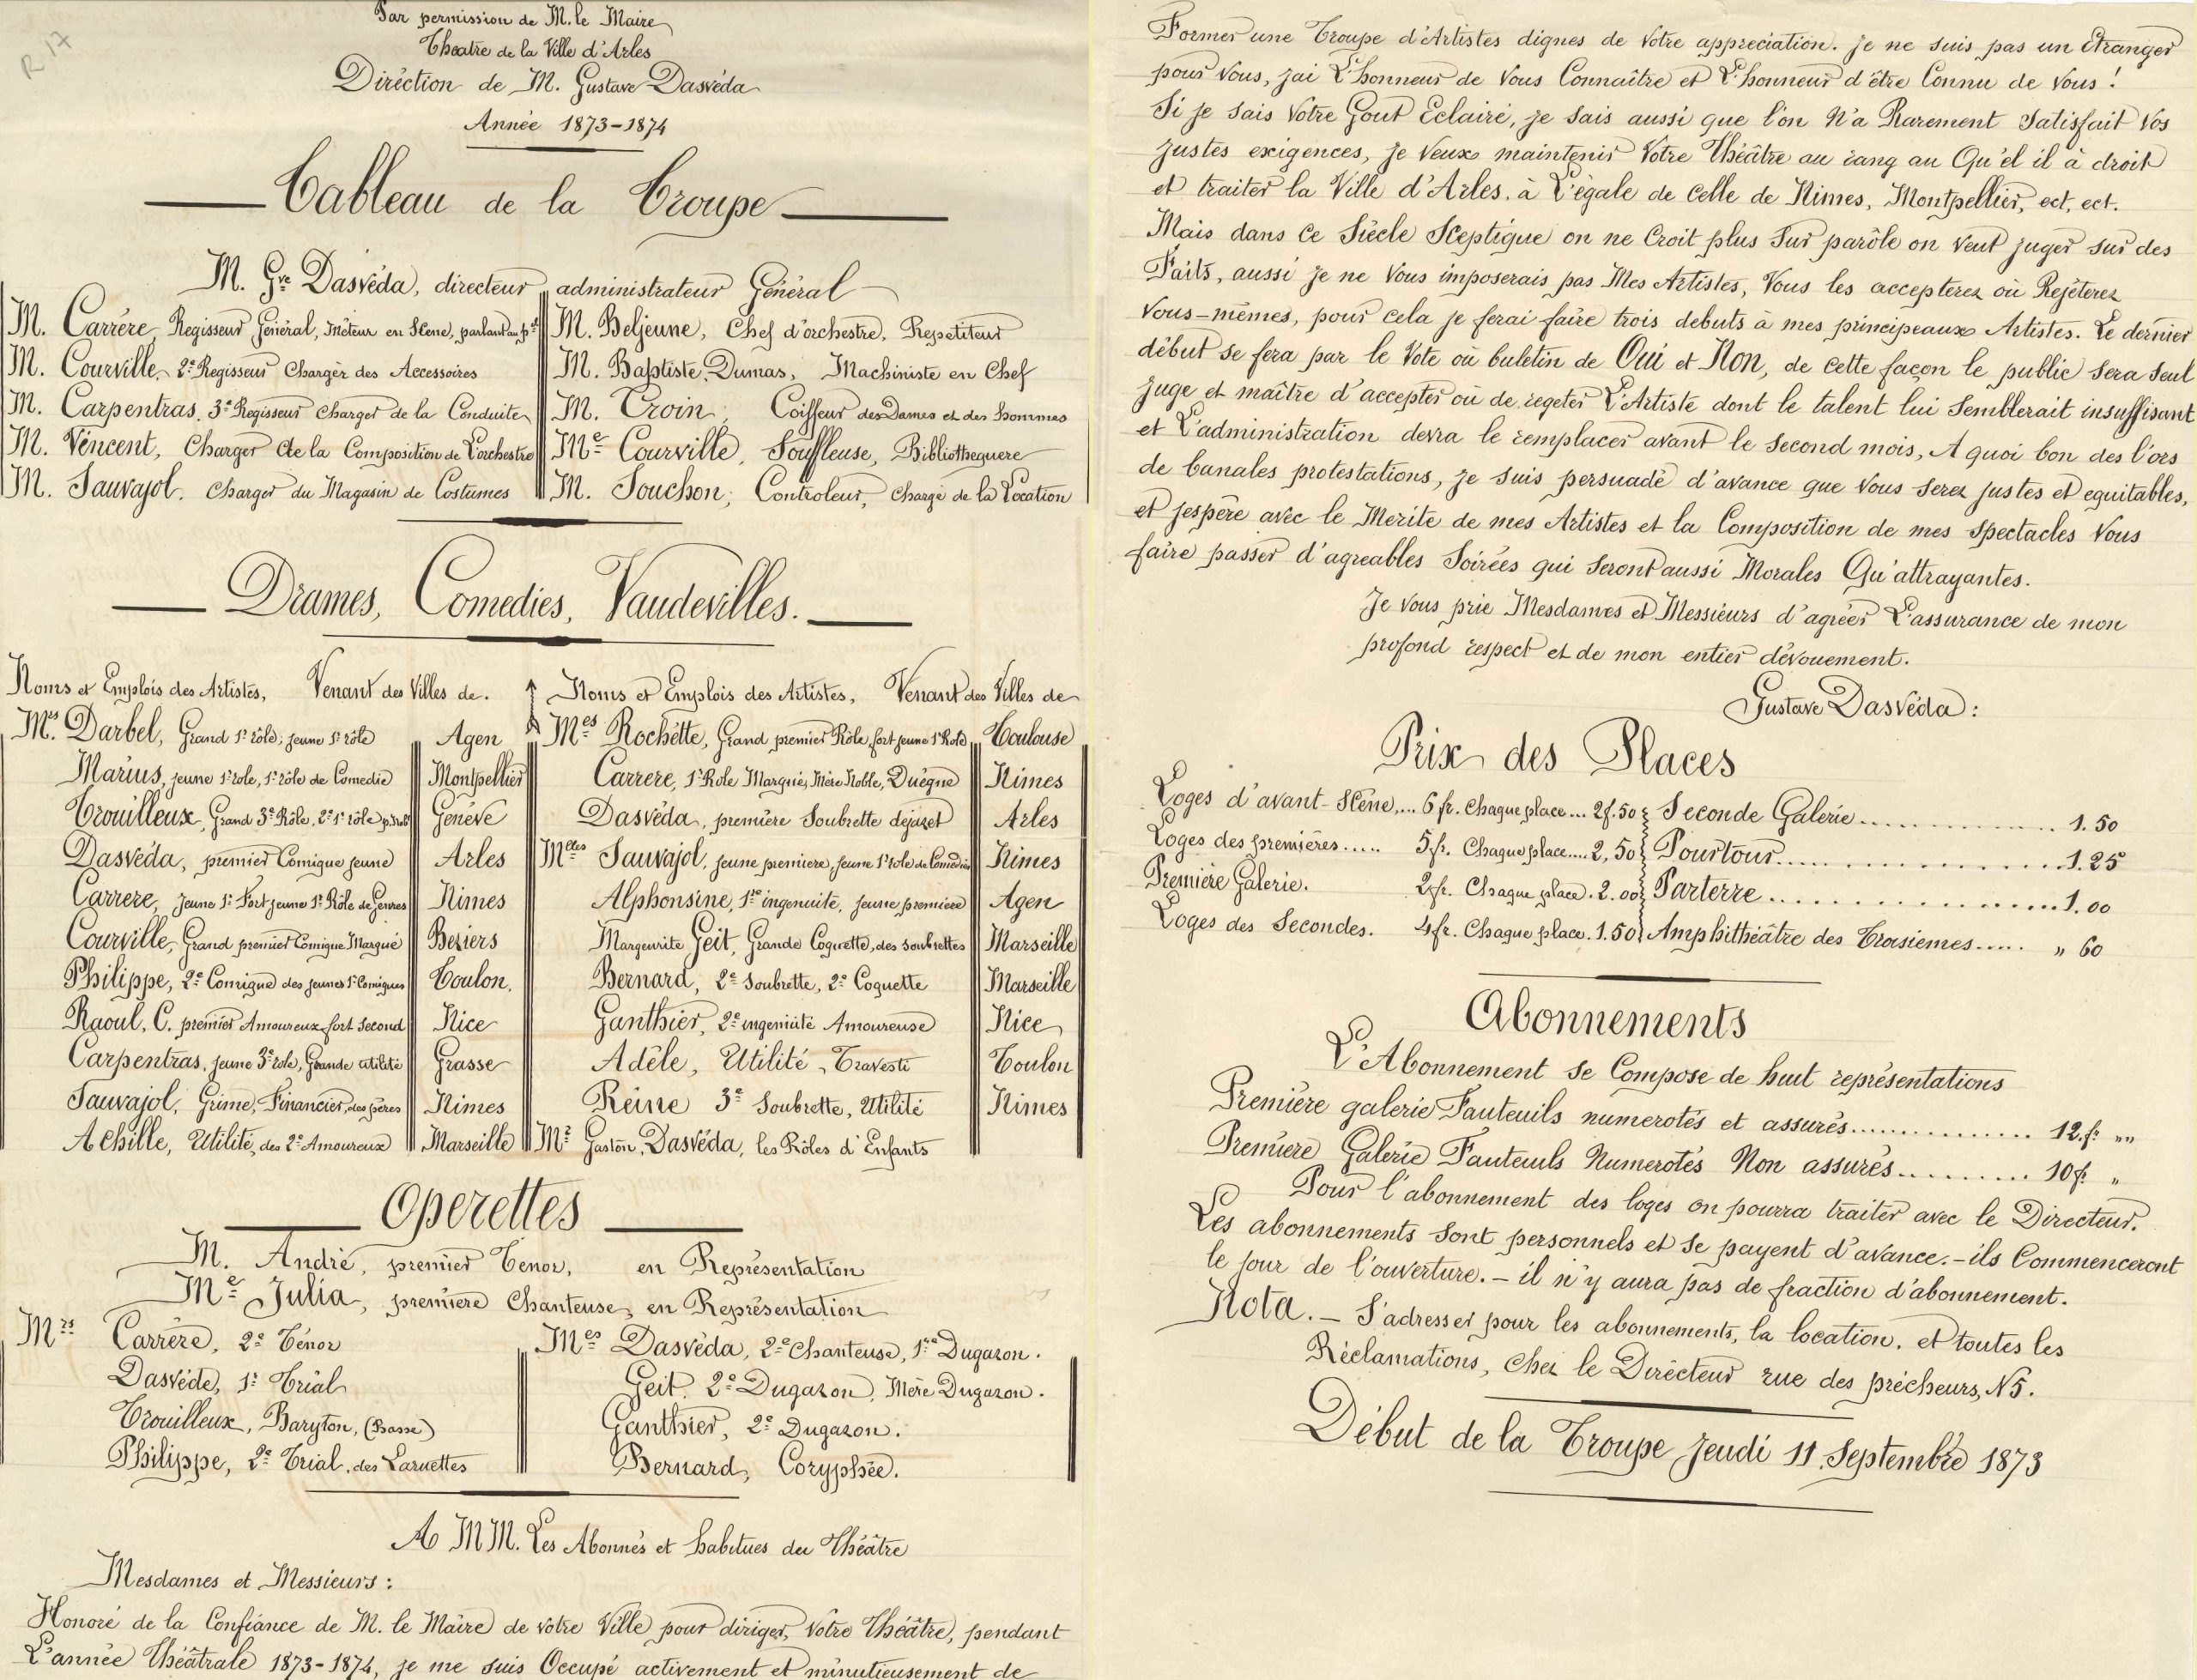 R 17
Par permission de M. le Maire
Théatre de la Ville d'Arles
Diréction de M. Gustave Dasvéda
Année 1873-1874
Tableau de la Troupe
M. Gve Dasvéda, directeur administrateur Général
M. Carrére, Regisseur Général, Méteur en Scene, parlant au pc
M. Courville, 2e Regisseur Chargér des Accessoires
M. Carpentras, 3e Regisseur Charger de la Conduite
M. Vincent, Charger de la Composition de L'orchestre
M. Sauvajol, Charger du Magasin de Costumes
M. Beljeune, Chef d'orchestre, Repetiteur
M. Baptiste Dumas, Machiniste en Chef
M. Troin, Coiffeur des Dames et des hommes
Me Courville, Souffleuse, Bibliothequere
M. Souchon, Controleur, Chargé de la Location
Drames, Comedies, Vaudevilles.
Noms et Emplois des Artistes, Venant des Villes de.
Ms. Darbel, Grand 1r rôle, jeune 1r rôle Agen
Marius, jeune 1r role, 1r rôle de Comedie Montpellier
Trouilleux, Grand 3e Rôle, 2e 1r rôle Généve
Dasvéda, premier Comique jeune Arles
Carrere, Jeune 1r Fort jeune 1r Rôle de Genres Nimes
Courville, Grand premier Comique Marqué Beziers
Philippe, 2e Comique des jeunes 1r Comiques Toulon.
Raoul, C. premier Amoureux fort second Nice
Carpentras, jeune 3e role, Grande utilité Grasse
Sauvajol, Grime, Financier, des pères Nimes
Achille, Utilité, des 2e Amoureux Marseille
Noms et Emplois des Artistes, Venant des Villes de
Mes Rochétte, Grand premier Rôle, fort jeune 1r Role Toulouse
Carrere, 1r Role Marqué, Mère Noble, Duégne Nimes
Dasvéda, première Soubrette déjazet Arles
Melles Sauvajol, jeune premiere, jeune 1r role de Comedie Nimes
Alphonsine, 1re ingenuité, jeune premiere Agen
Margeurite Geit, Grande Coquette, des soubrettes Marseille
Bernard, 2e Soubrette, 2e Coquette Marseille
Ganthier, 2e ingenuité Amoureuse Nice
Adéle, Utilité, Travesti Toulon
Reine 3e Soubrette, Utilité Nimes
Mr Gaston, Dasvéda, les Rôles d'Enfants
Operettes
M. André, premier Tenor, en Représentation
Me Julia, premiere Chanteuse, en Représentation
Mrs Carrére, 2e Ténor
Dasvéde, 1r Trial
Trouilleux, Baryton, (Basse)
Philippe, 2e Trial, des Laruettes
Mes Dasvéda, 2e Chanteuse, 1re Dugazon.
Geit, 2e Dugazon, Mère Dugazon.
Ganthier, 2e Dugazon.
Bernard, Coryphée.
A MM. Les Abonnés et habitues du Théâtre
Mesdames et Messieurs :
Honoré de la Confiance de M. le Maire de votre Ville pour diriger, Votre Théâtre, pendant
L'année Théâtrale 1873-1874, je me suis Occupé activement et minutieusement de
Former une Troupe d'Artistes dignes de votre appreciation. je ne suis pas un étranger
pour Vous, jai L'honneur de Vous Connaître et L'honneur d'être Connu de Vous !
Si je sais Votre Gout Eclairé, je sais aussi que l'on N'a Rarement satisfait Vos
justes exigences, je Veux maintenir Votre Théâtre au rang au Qu'el il à droit
et traiter la Ville d'Arles, à L'égale de celle de Nimes, Montpellier, ect, ect.
Mais dans ce Siécle Sceptique on ne Croit plus Sur parôle on veut juger sur des
Faits, aussi je ne Vous imposerais pas Mes Artistes, Vous les accepterez où Rejéterez
Vous-mêmes, pour cela je ferai faire trois debuts à mes principeaux Artistes. Le dernier
début se fera par le Vote où buletin de Oui et Non, de cette façon le public sera seul
juge et maître d'accepter où de regeter L'Artiste dont le talent lui Semblerait insuffisant
et L'administration devra le remplacer avant le second mois, A quoi bon des l'ors
de banales protestations, je suis persuadé d'avance que Vous serez justes et equitables,
et jespére avec le Merite de mes Artistes et la Composition de mes spectacles Vous
faire passer d'agreables Soirées qui seront aussi Morales Qu'attrayantes.
Je vous prie Mesdames et Messieurs d'agréer L'assurance de mon
profond respect et de mon entier dévouement.
Gustave Dasvéda :
Prix des Places
Loges d'avant-Scéne,... 6 fr. Chaque place... 2f.50
Loges des premières..... 5 fr. Chaque place.... 2,50
Première Galerie. 2 fr. Chaque place. 2.00
Loges des Secondes. 4 fr. Chaque place. 1.50
Seconde Galerie.................... 1.50
Pourtour..............................1.25
Parterre..............................1.00
Amphithéâtre des Troisiemes..... " 60
Abonnements
L'Abonnement se Compose de huit représentations
Première galerie Fauteuils numerotés et assurés............... 12.fr ""
Première Galerie Fauteuils Numerotés Non assurés.......... 10 fr "
Pour l'abonnement des loges on pourra traiter avec le Directeur.
Les abonnements sont personnels et se payent d'avance.- ils Commenceront
le jour de l'ouverture.- il n'y aura pas de fraction d'abonnement.
Nota.- S'adresser pour les abonnements, la location, et toutes les
Réclamations, Chez le Directeur rue des précheurs, N 5.
Début de la Troupe Jeudi 11 Septembre 1873